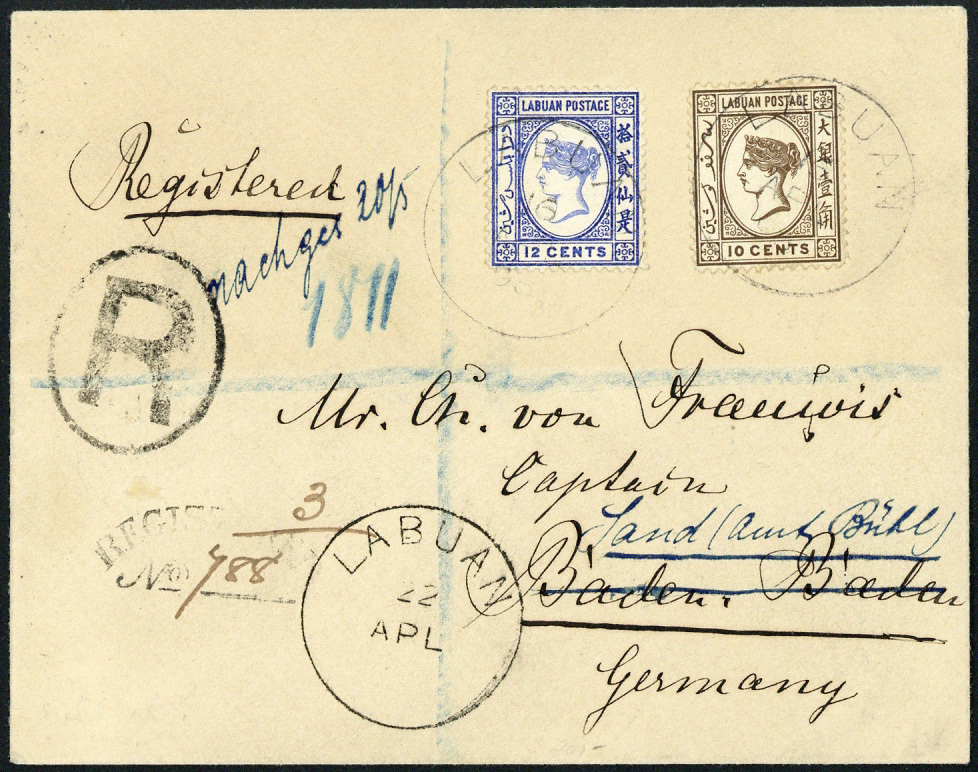 Registered
nachges 20/5
1811
LABUAN POSTAGE
拾貳仙是
12 CENTS
LABUAN POSTAGE
大銀壹角
10 CENTS
LABUAN
LABUAN
R
Mr. Ch. von François
Captain
Sand (Amt Bühl)
Baden. Baden
Germany
3
REGIST
No 788
LABUAN
22
APL